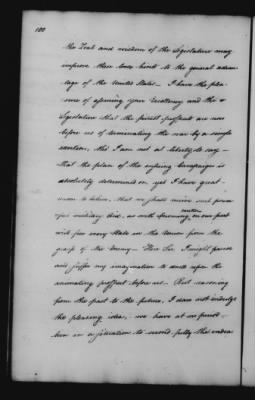 100
the Zeal and wisdom of the Legislature may
improve these loose hints to the general advan-
tage of the United States — I have the plea-
sure of assuring your Excellency and the
Legislature that the fairest prospects are now
before us of terminating the war by a single
exertion, tho I am not at liberty to say —
that the plan of the ensuing Campaign is
absolutely determined on, yet I have great
reason to believe, that we shall receive such
military Aid, as with on our part
will free every State in the Union from the
grasp of the Enemy — Here Sir I might pause
and suffer my imagination to dwell upon the
animating prospect before us — But reasoning
from the past to the future, I dare not indulge
the pleasing idea, we have at no period
been in a situation to second fully the